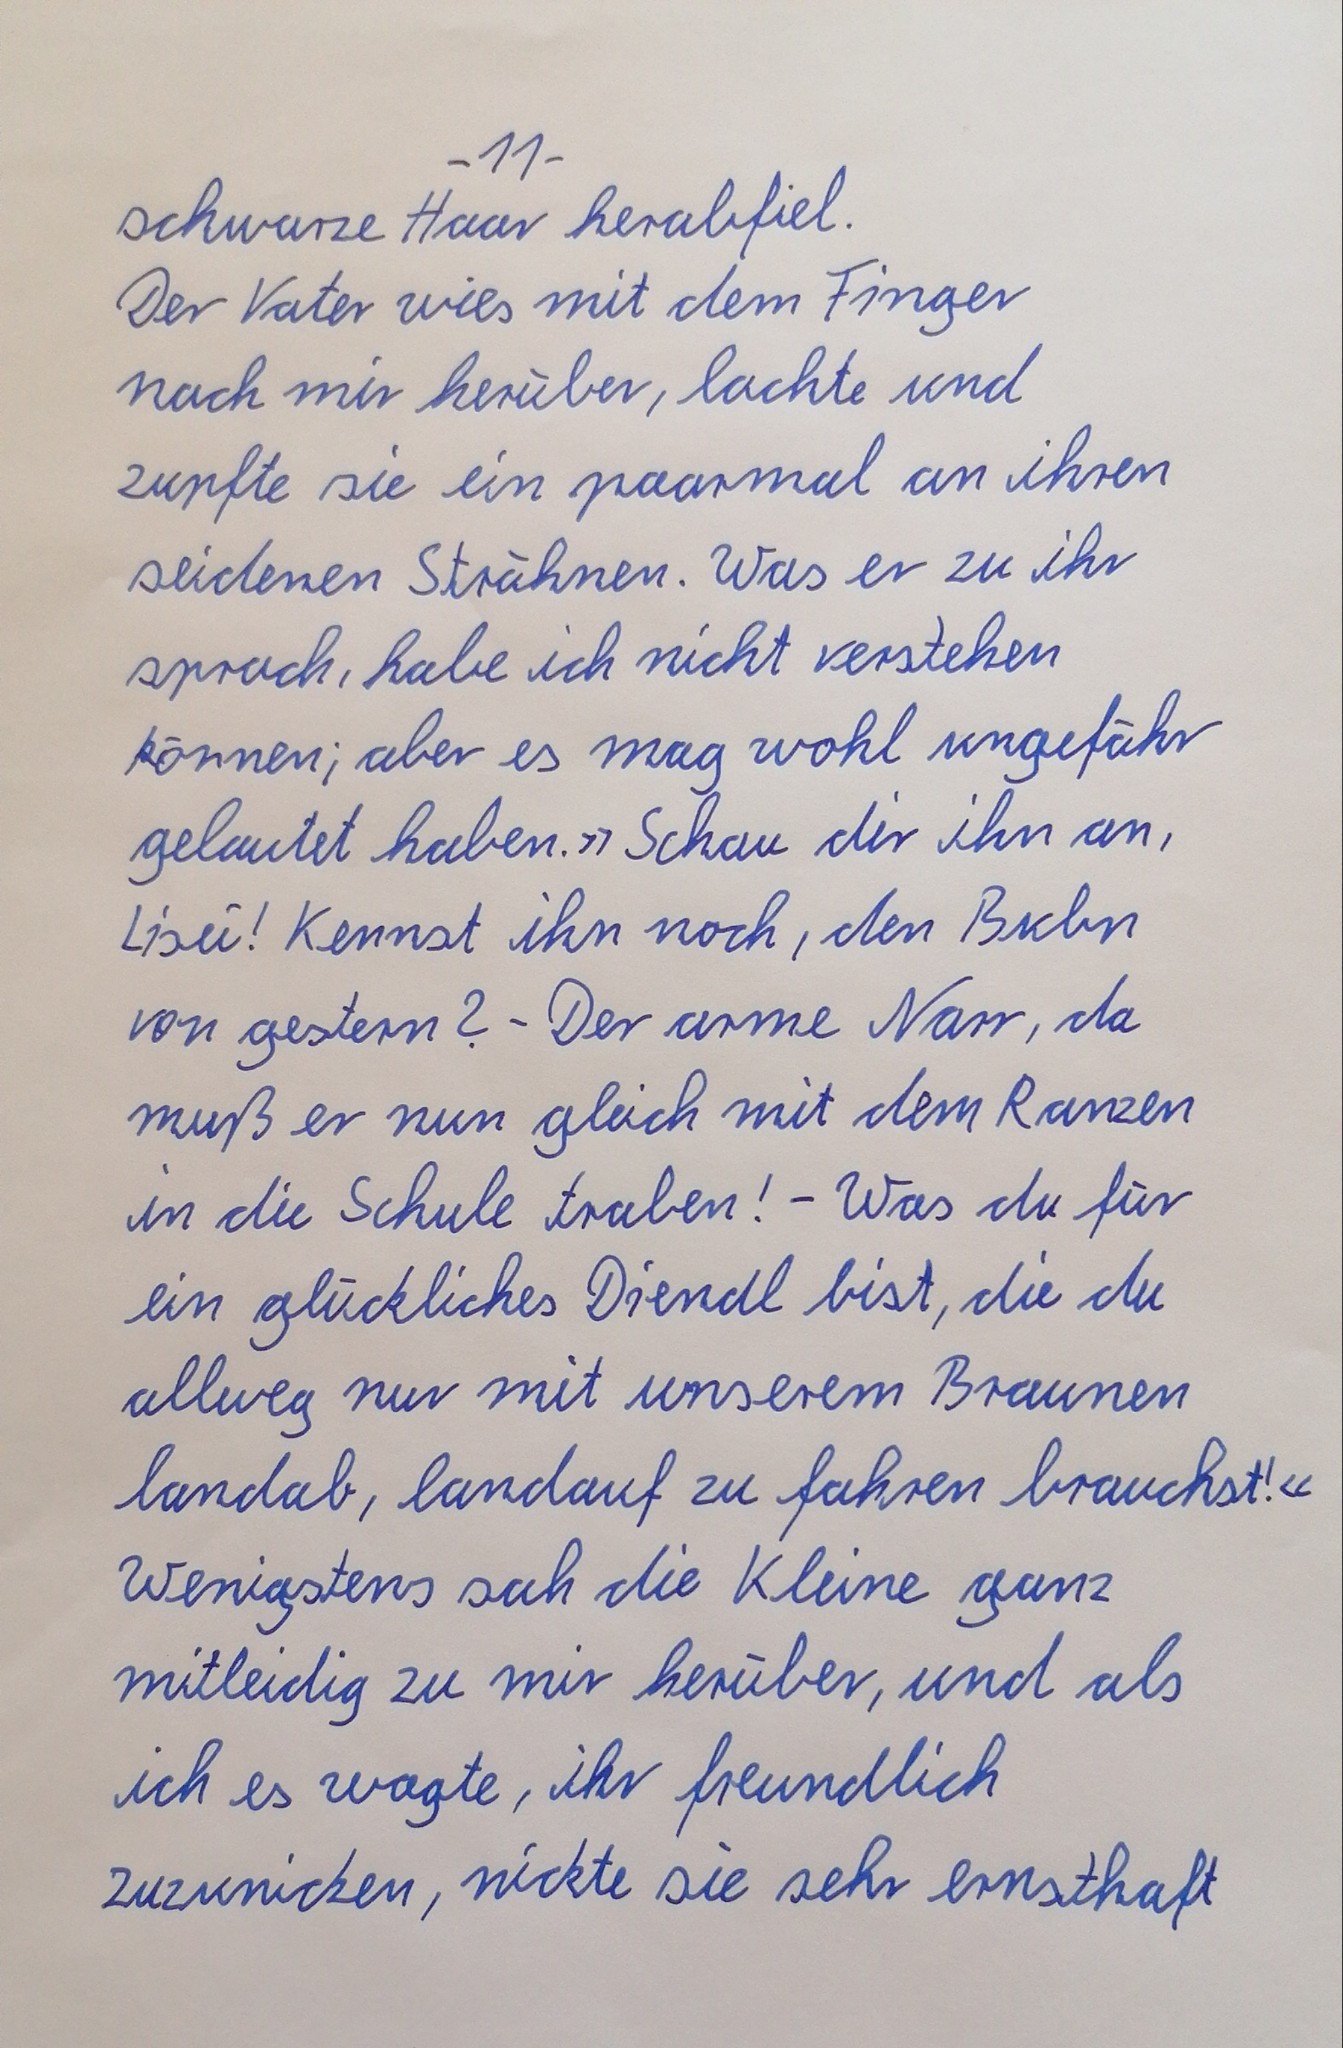 -11-
schwarze Haar herabfiel.
Der Vater wies mit dem Finger
nach mir herüber, lachte und
zupfte sie ein paarmal an ihren
seidenen Strähnen. Was er zu ihr
sprach, habe ich nicht verstehen
können; aber es mag wohl ungefähr
gelautet haben. »Schau dir ihn an,
Lisei! Kennst ihn noch, den Bubn
von gestern? - Der arme Narr, da
muß er nun gleich mit dem Ranzen
in die Schule traben! - Was du für
ein glückliches Diendl bist, die du
allweg nur mit unserem Braunen
landab, landauf zu fahren brauchst!«
Wenigstens sah die Kleine ganz
mitleidig zu mir herüber, und als
ich es wagte, ihr freundlich
zuzunicken, nickte sie sehr ernsthaft